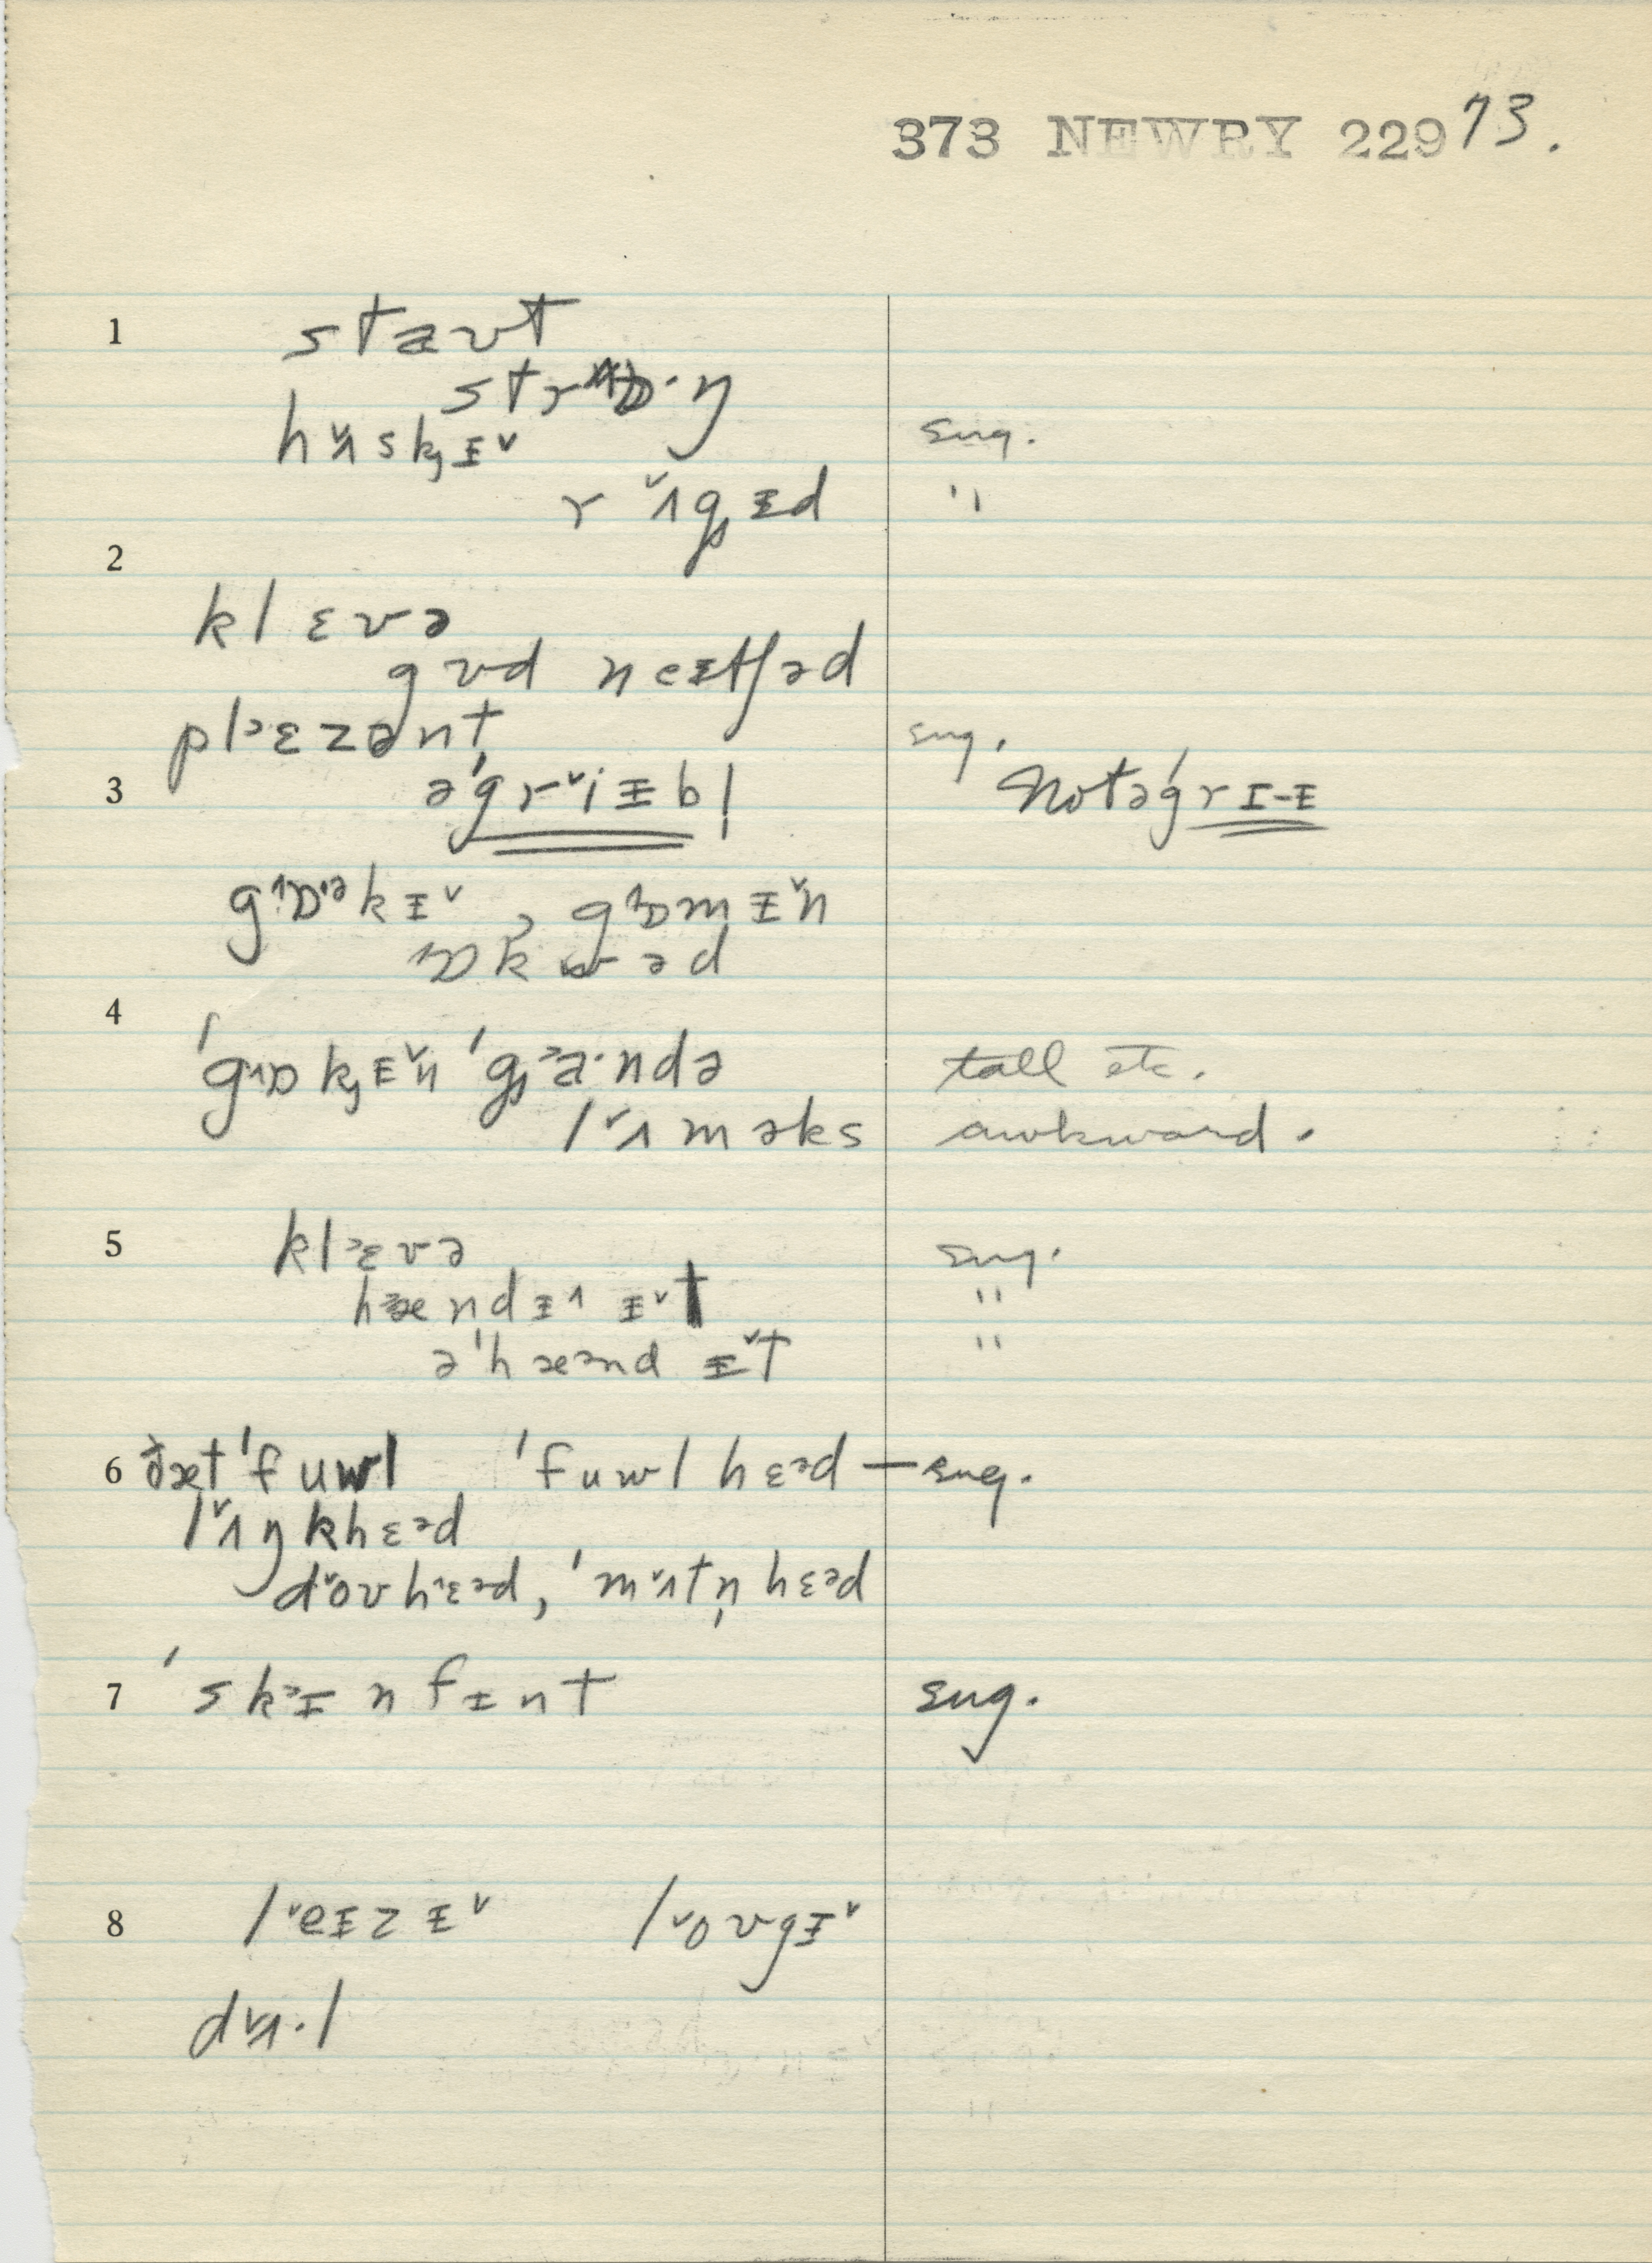 373 NEWRY 229 73.
1 staʊt
strɒ·ŋ
hʌ˅skɪ˅ sug.
rʌ˅gɪd "
2
klɛvə
gʊd neɪtʃəd
plᵊɛzənt sug.
3 ə'gr˅iɪbl̩ Not ə'grɪ-ɪ
gɒᵊkɪ˅, gɒmɪ˅n
ɒkwəd
4
'gɒkɪ˅n 'gᵊa·ndə tall etc.
l˅ʌməks awkward.
5 klᵊɛvə sug.
hændɪ˄ ɪ˅t "
ə'hæᵊnd ɪ˅t "
6 ðæt 'fuwl 'fuwlhɛᵊd — sug.
l˅ʌŋkhɛᵊd
d˅oʊhɛᵊd, 'm˅ʌtn̩hɛᵊd
7 'skᵊɪnflɪnt sug.
8 l˅eɪzɪ˅ l˅oʊgɪ˅
d˅ʌ·l